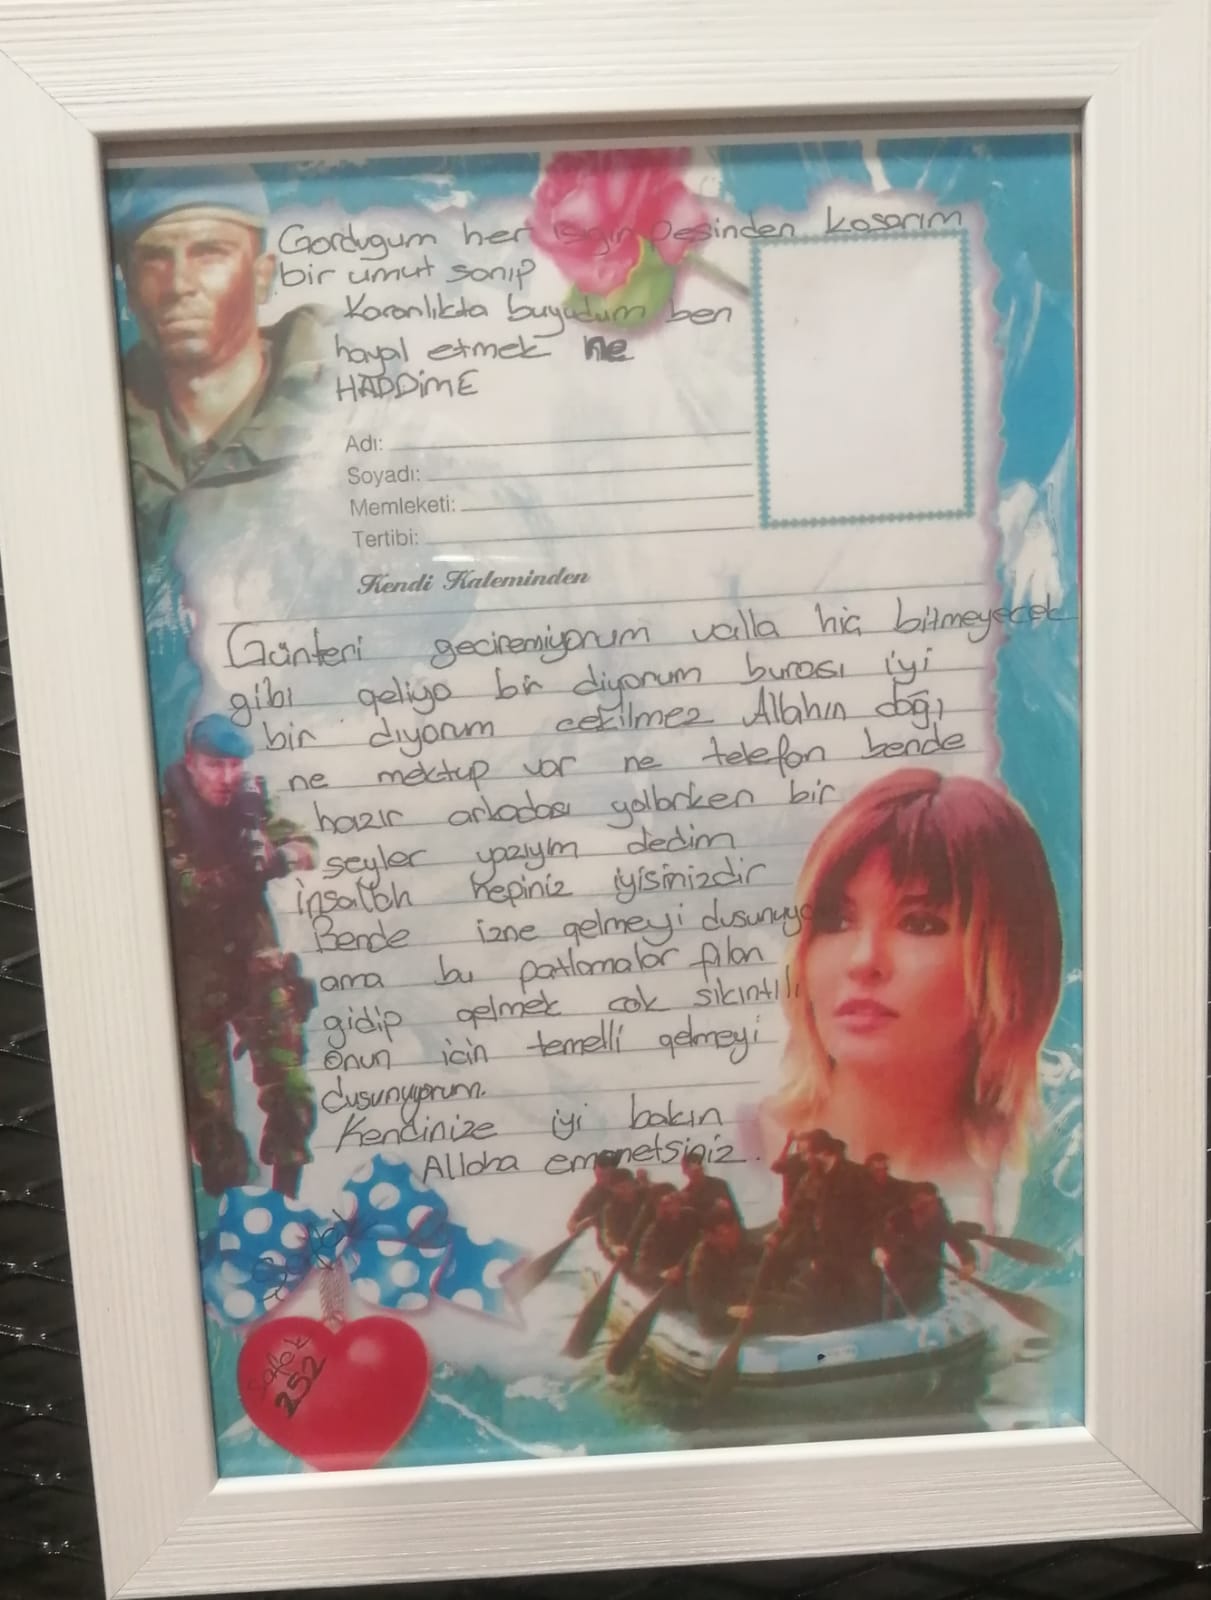 Gordugum her isigin pesinden kosarım
bir umut sanıp
Karanlıkta buyudum ben
hayal etmek ne
HADDİME
Adı:
Soyadı:
Memleketi:
Tertibi:
Kendi Kaleminden
Günleri geciremiyorum valla hiç bitmeyecek
gibi geliyo bir diyorum burası iyi
bir diyorum cekilmez Allahın dağı
ne mektup var ne telefon bende
hazır arkadası yollarken bir
seyler yazıyım dedim
İnsallah hepiniz iyisinizdir
Bende izne gelmeyi dusunuyo
ama bu patlamalar filan
gidip gelmek cok sıkıntılı
Onun icin temelli gelmeyi
dusunuyorum.
Kendinize iyi bakın
Allaha emanetsiniz.
safak
safak
252